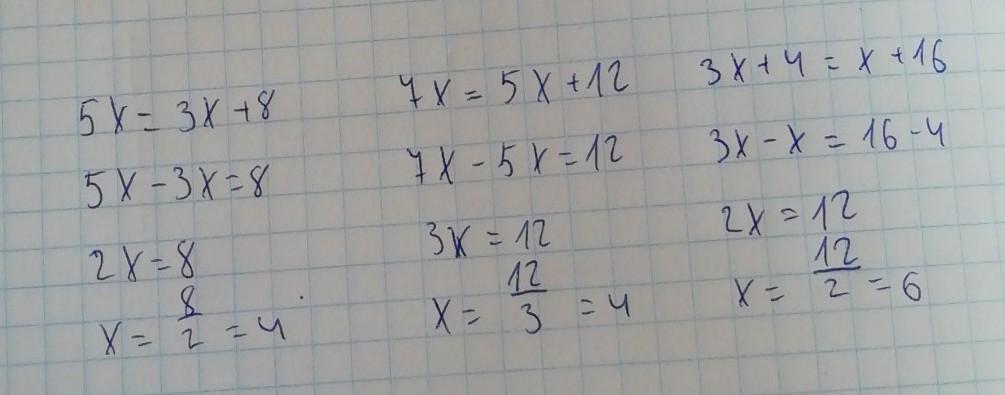 5x = 3x + 8
5x - 3x = 8
2x = 8
x = 8/2 = 4
7x = 5x + 12
7x - 5x = 12
3x = 12
x = 12/3 = 4
3x + 4 = x + 16
3x - x = 16 - 4
2x = 12
x = 12/2 = 6